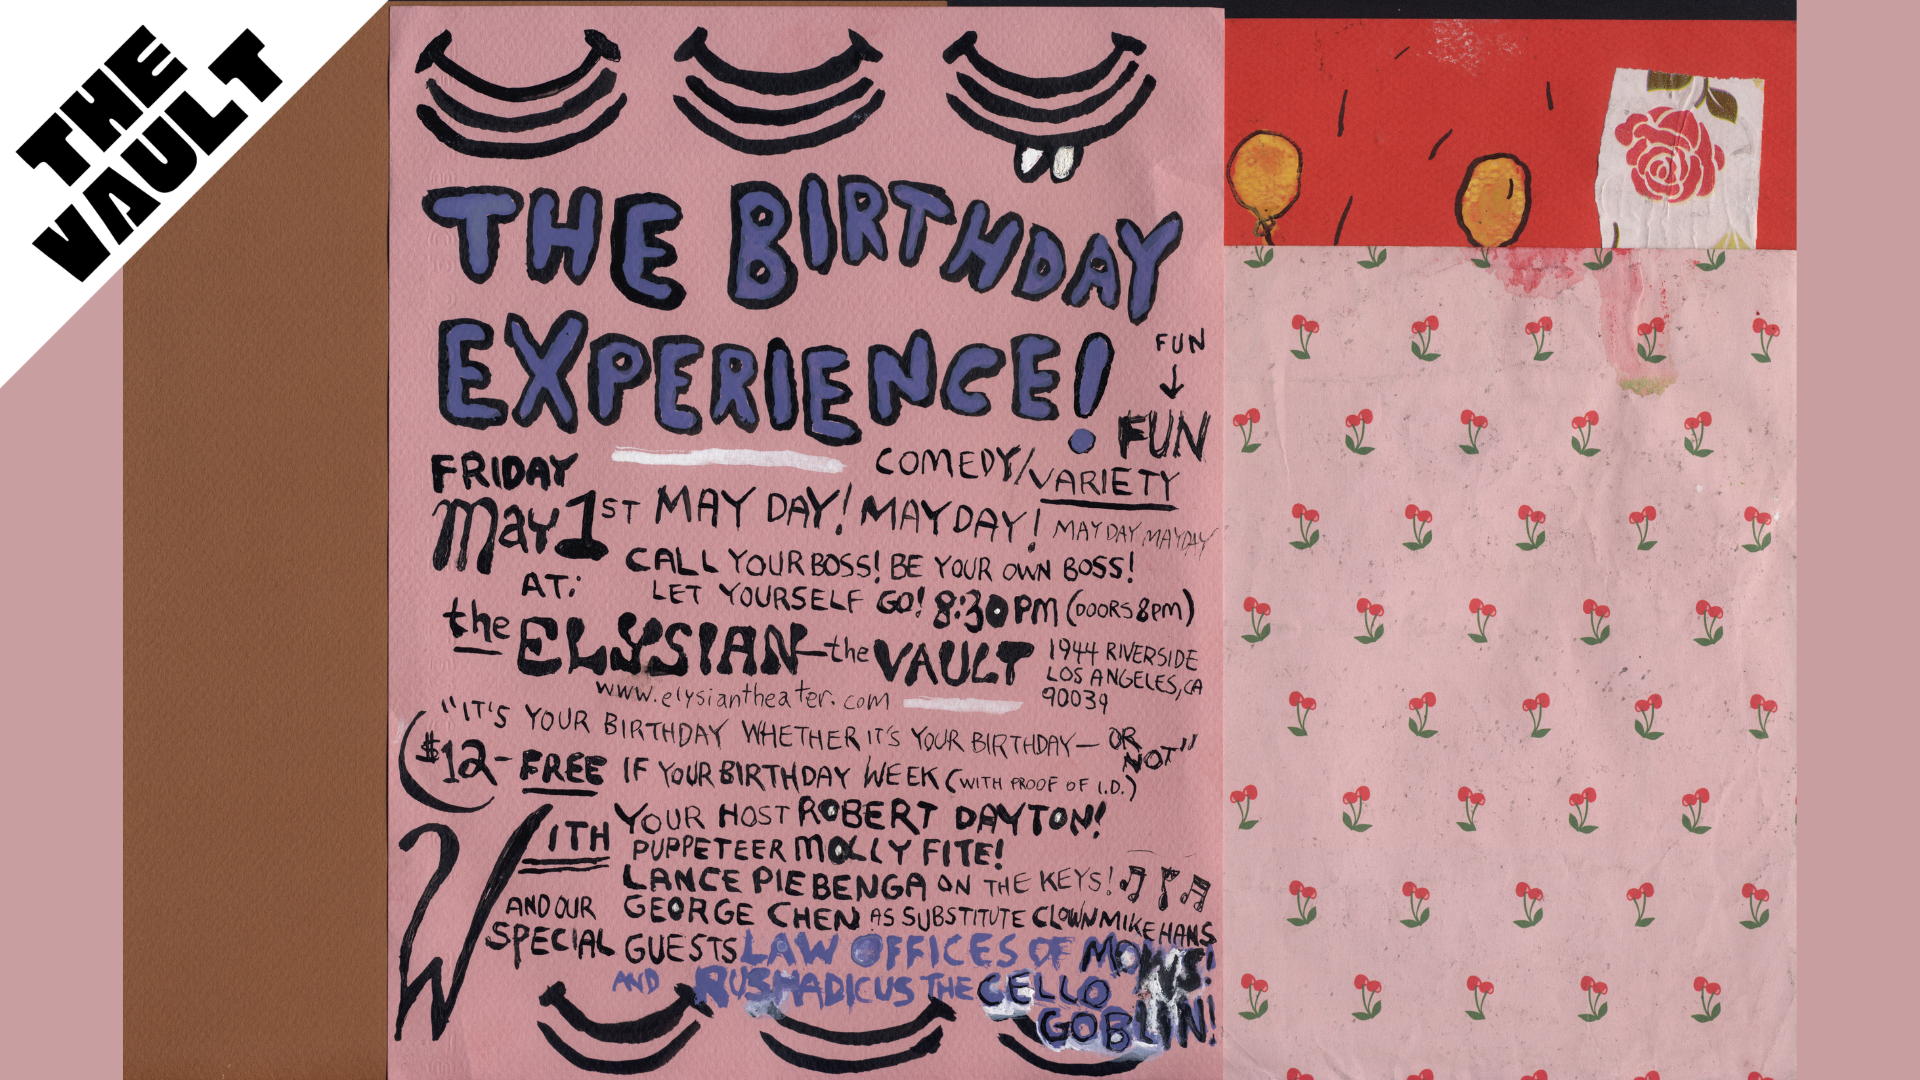 THE
VAULT
THE BIRTHDAY
EXPERIENCE!
FUN
FUN
COMEDY/VARIETY
FRIDAY
May 1ST MAY DAY! MAYDAY! MAYDAY MAYDAY
CALL YOUR BOSS! BE YOUR OWN BOSS!
AT: LET YOURSELF GO! 8:30PM (DOORS 8PM)
the ELYSIAN-the VAULT
1944 RIVERSIDE
LOS ANGELES, CA
90039
www.elysiantheater.com
"IT'S YOUR BIRTHDAY WHETHER IT'S YOUR BIRTHDAY- OR NOT"
($12-FREE IF YOUR BIRTHDAY WEEK (WITH PROOF OF I.D.)
WITH YOUR HOST ROBERT DAYTON!
PUPPETEER MOLLY FITE!
LANCE PIEBENGA ON THE KEYS!
GEORGE CHEN AS SUBSTITUTE CLOWN MIKE HANS
AND OUR
SPECIAL GUESTS LAW OFFICES OF MOWS!
AND RUSHADICUS THE CELLO
GOBLIN!